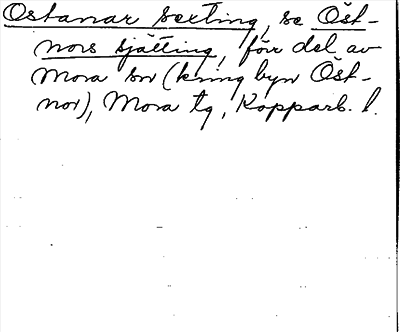 Ostanar sexting, se Öst-
nors sjätting, förr del av
Mora sn (kring byn Öst-
nor), Mora tg, Kopparb. l.